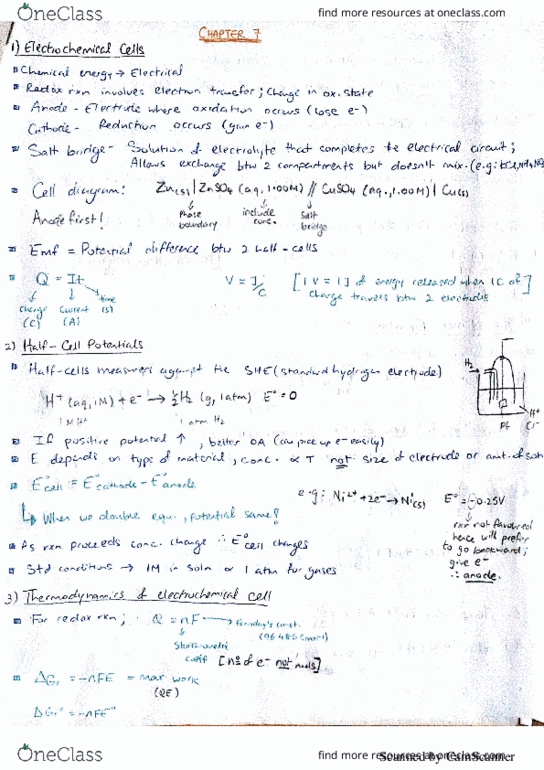 OneClass
find more resources at oneclass.com
CHAPTER 7
1) Electrochemical Cells
Chemical energy → Electrical
Redox rxn involves electron transfer; change in ox. state
Anode - Electrode where oxidation occurs (lose e-)
Cathode - Reduction occurs (gain e-)
Salt bridge - Solution of electrolyte that completes the electrical circuit;
Allows exchange btw 2 compartments but doesn't mix. (e.g: KCl, NH4NO3
Cell diagram: Zn(s) | ZnSO4 (aq, 1.00M) // CuSO4 (aq., 1.00M) | Cu(s)
Anode first! Phase boundary include conc. Salt bridge
Emf = Potential difference btw 2 half-cells
Q = It V = J/C [1V = 1J of energy released when 1C of
charge travels btw 2 electrodes]
Charge (C) Current (A) time (s)
2) Half-Cell Potentials
Half-cells measured against the SHE (standard hydrogen electrode)
H2
H+ (aq, 1M) + e- → ½H2 (g, 1atm) E° = 0
1 M H+ 1 atm H2
H+
Cl-
Pt
If positive potential ↑, better OA (can pick up e- easily)
E depends on type of material, conc. & T not size of electrode or amt. of soln
E°cell = E°cathode - E°anode
e.g: Ni2+ + 2e- → Ni(s) E° = -0.25V
↳ When we double equ., potential same!
rxn not favoured
hence will prefer
to go backward;
give e-
∴ anode.
As rxn proceeds conc. change ∴ E°cell changes
Std conditions → 1M in soln or 1 atm for gases
3) Thermodynamics of electrochemical cell
For redox rxn; Q = nF → Faraday's const.
(96 485 Cmol-1)
Stoichiometric
coeff [no of e- not mols]
ΔGr = -nFE = max work
(QE)
ΔGr° = -nFE°
OneClass
find more resources at oneclass.com
Scanned by CamScanner